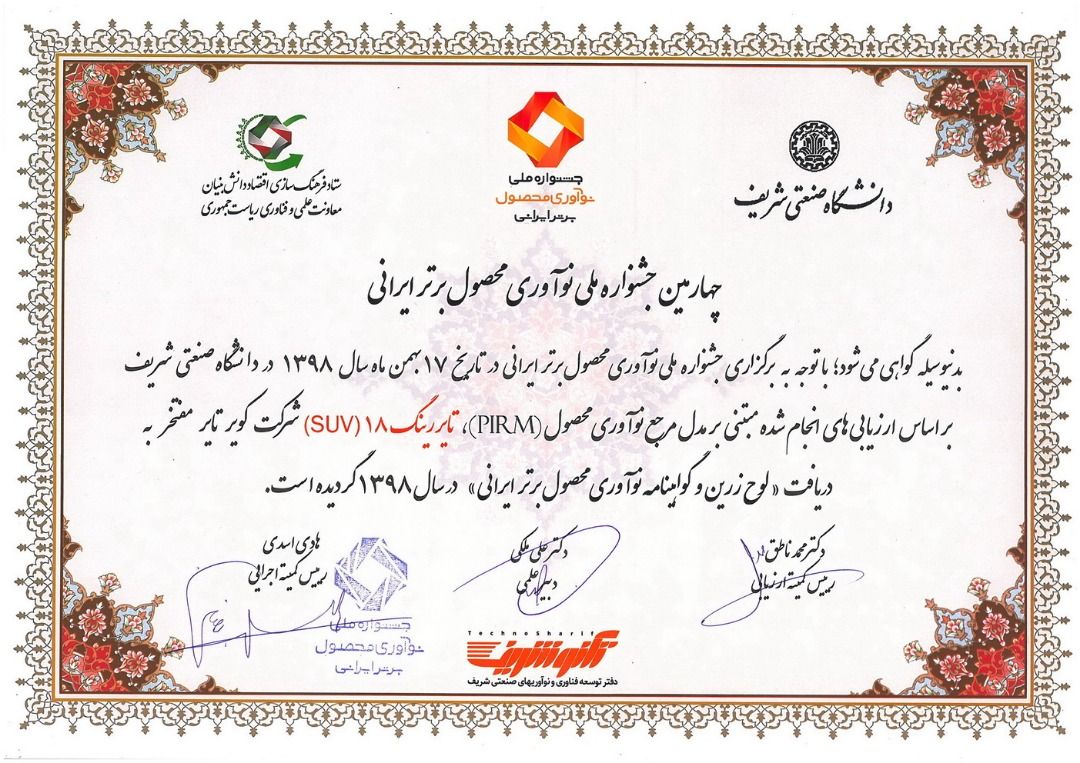 دانشگاه صنعتی شریف
جشنواره ملی
نوآوری محصول
برتر ایرانی
ستاد فرهنگ سازی اقتصاد دانش بنیان
معاونت علمی و فناوری ریاست جمهوری
چهارمین جشنواره ملی نوآوری محصول برتر ایرانی
بدینوسیله گواهی می شود؛ با توجه به برگزاری جشنواره ملی نوآوری محصول برتر ایرانی در تاریخ ۱۷ بهمن ماه سال ۱۳۹۸ در دانشگاه صنعتی شریف
بر اساس ارزیابی های انجام شده مبتنی بر مدل مرجع نوآوری محصول (PIRM)، تایر رینگ ۱۸ (SUV) شرکت کویر تایر مفتخر به
دریافت «لوح زرین و گواهینامه نوآوری محصول برتر ایرانی» در سال ۱۳۹۸ گردیده است.
دکتر محمد ناطق
رییس کمیته ارزیابی
دکتر علی ملکی
دبیر علمی
هادی اسدی
رییس کمیته اجرایی
جشنواره ملی
نوآوری محصول
برتر ایرانی
TechnoSharif
تکنوشریف
دفتر توسعه فناوری و نوآوریهای صنعتی شریف